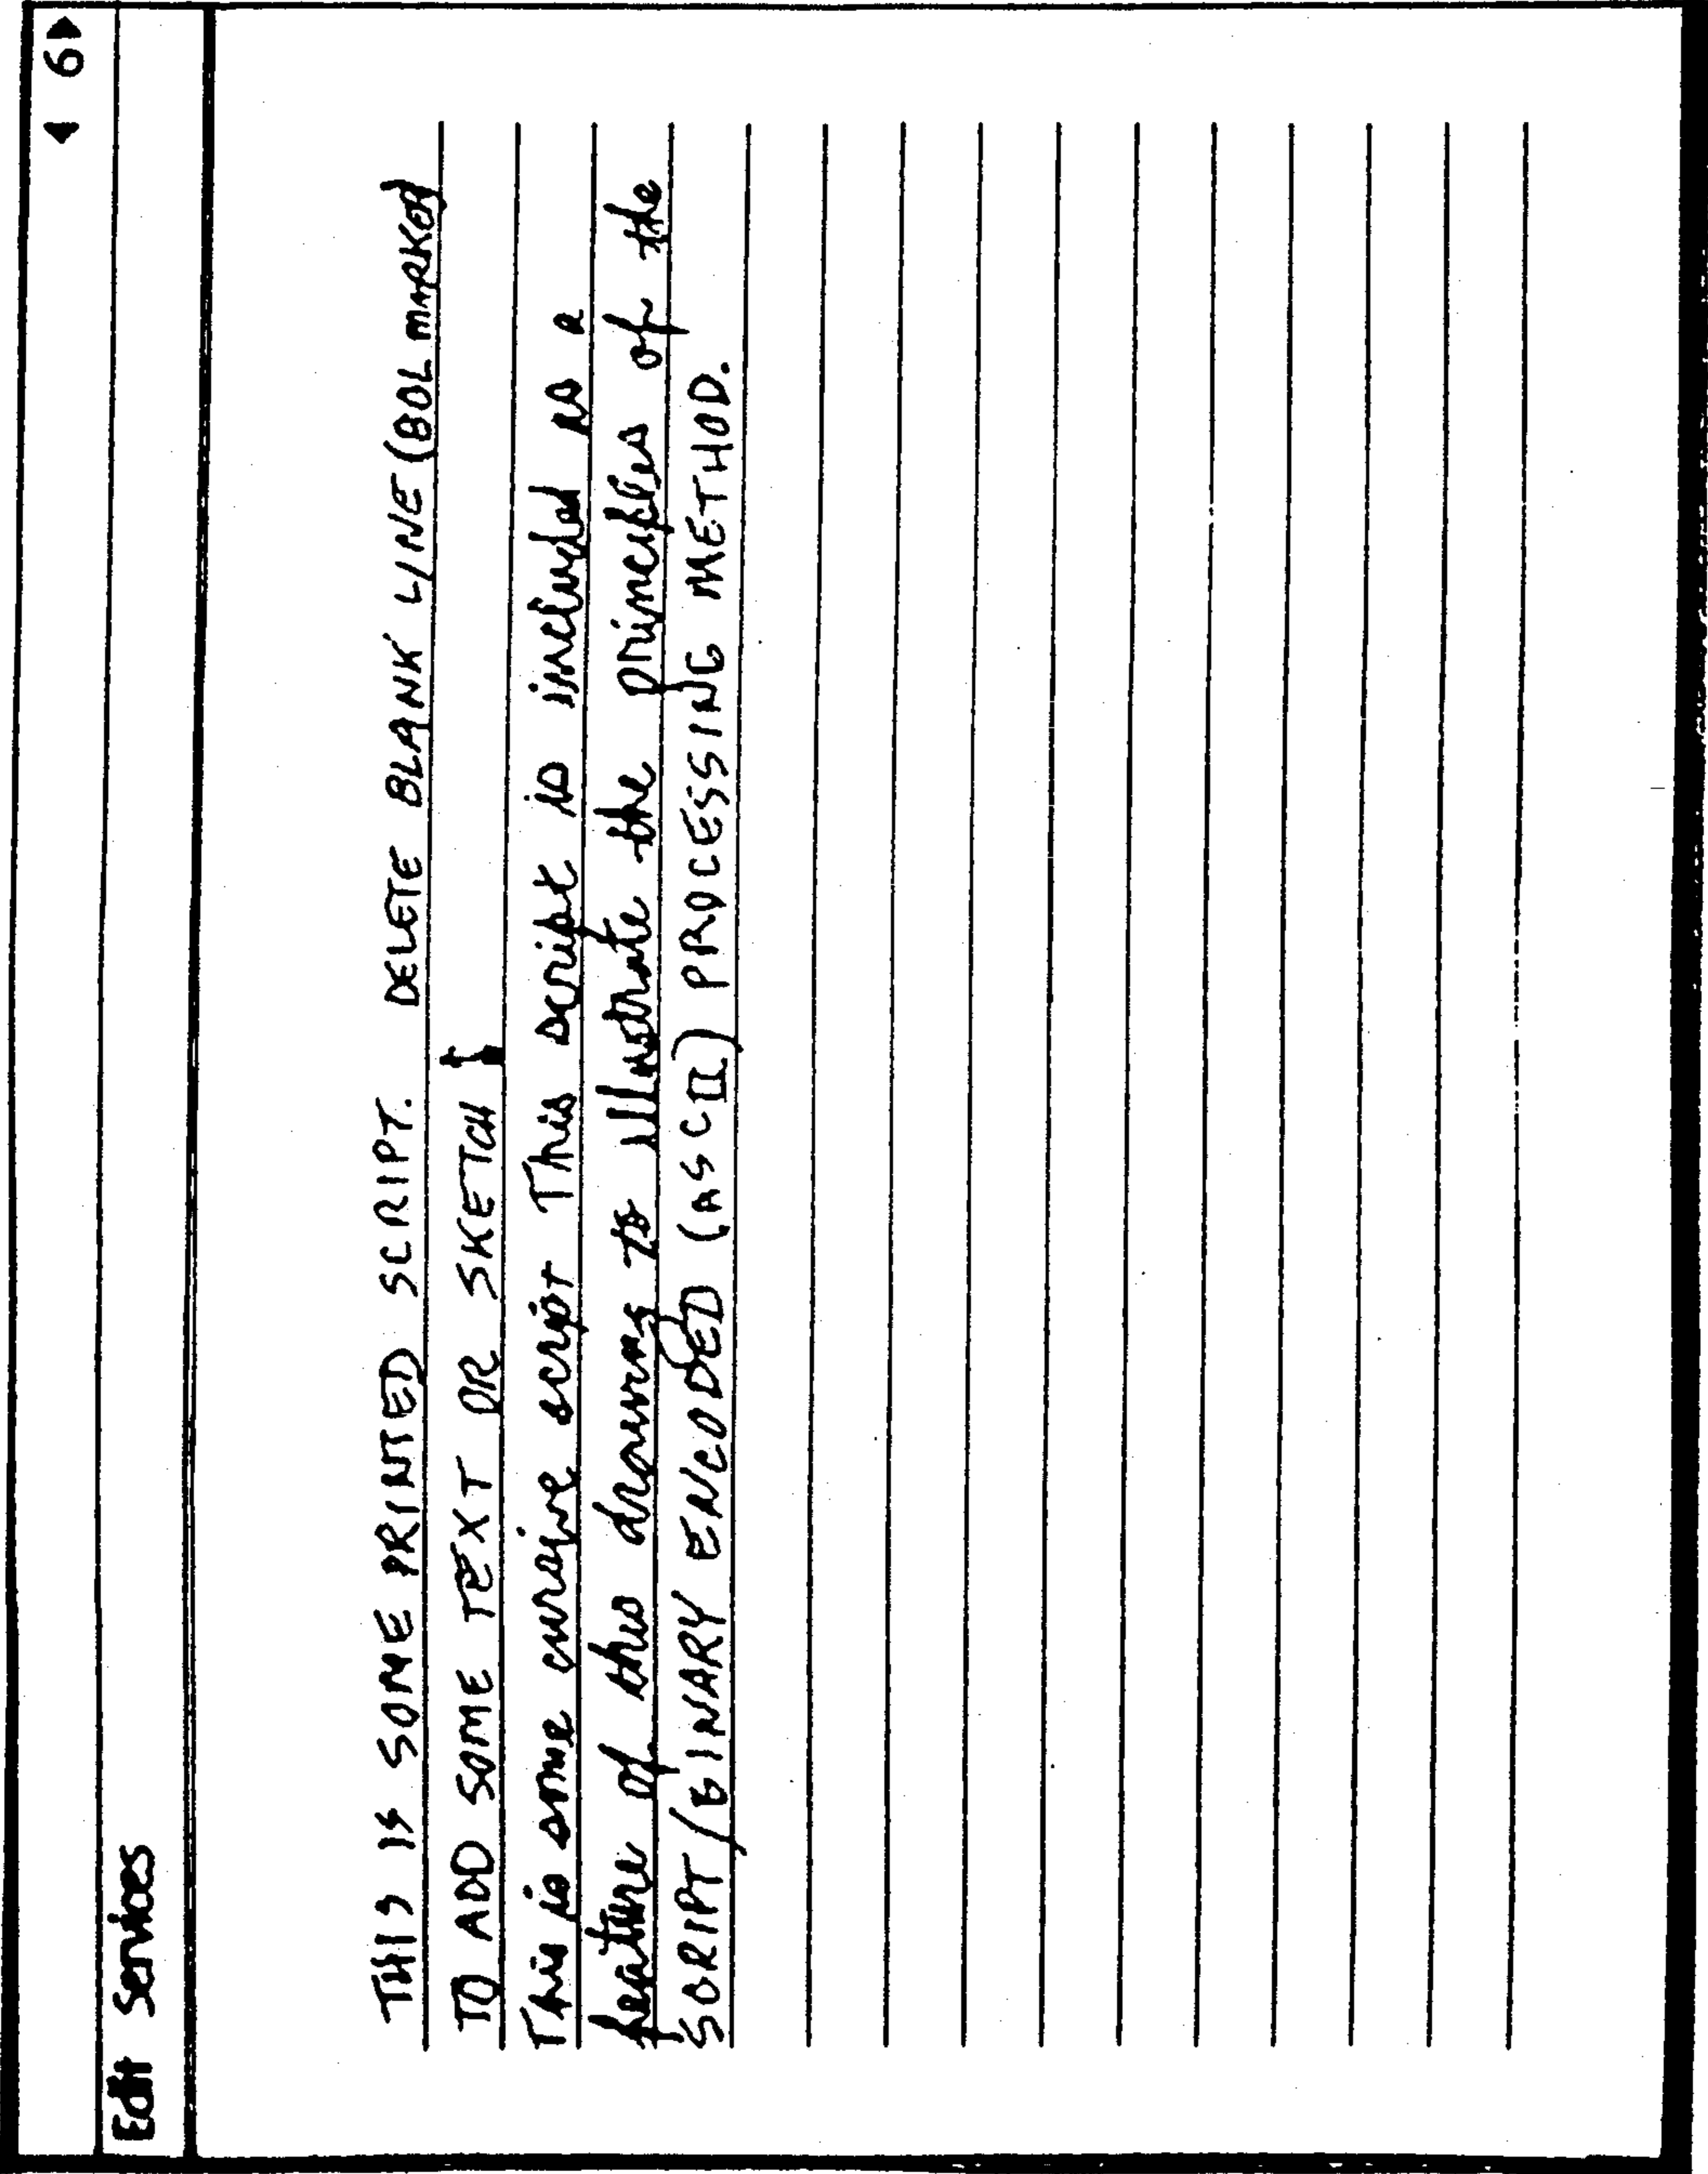 ◀ 6▶
Edit Services
THIS IS SOME PRINTED SCRIPT. DELETE BLANK LINE (BOL MARKED)
TO ADD SOME TEXT OR SKETCH
This is some cursive script This script is included as a
feature of this drawing to illustrate the principles of the
SCRIPT/BINARY ENCODED (ASCII) PROCESSING METHOD.